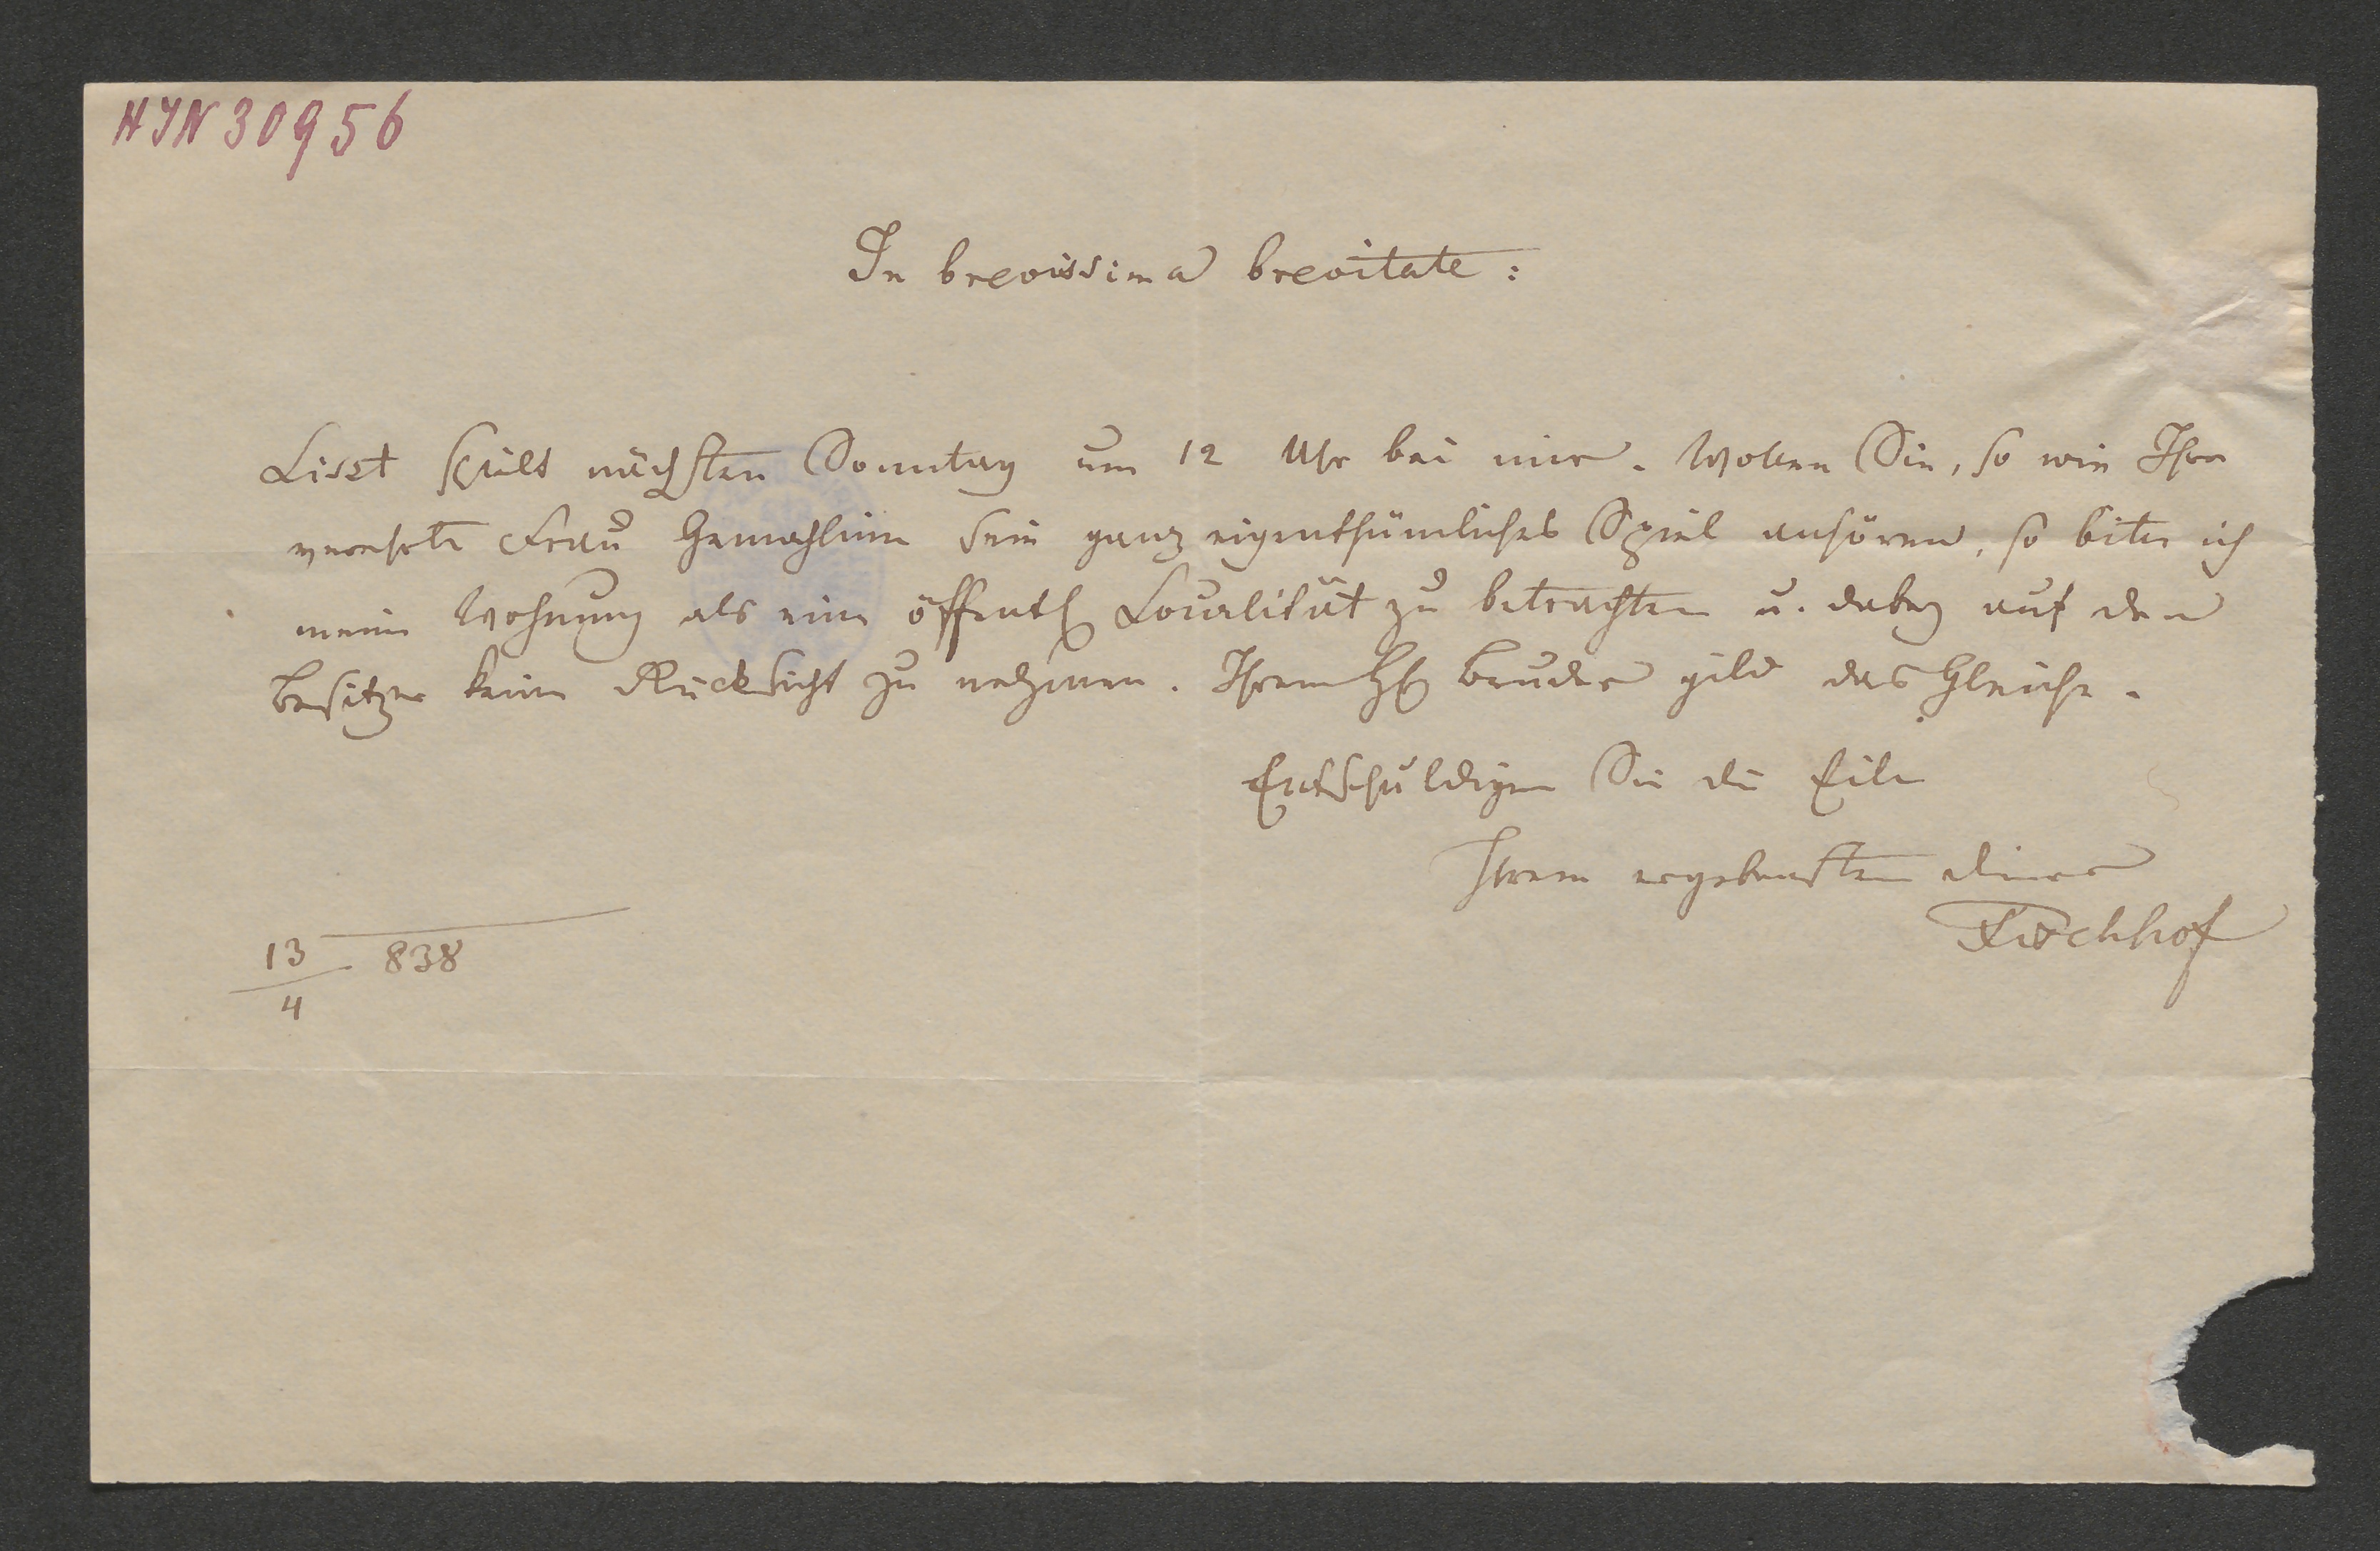 HJN 30956
In brevissima brevitate:
Liszt spielt nächsten Sonntag um 12 Uhr bei mir. Wollen Sie, so wie Ihre
verehrte Frau Gemahlinn sein ganz eigenthümliches Spiel anhören, so bitte ich
meine Wohnung als eine öffentl Localität zu betrachten u. dabey auf den
Besitzer keine Rücksicht zu nehmen. Ihrem H Bruder gilt das Gleiche.
Entschuldigen Sie die Eile
Ihrem ergebensten Diener
Fischhof
13 838
4